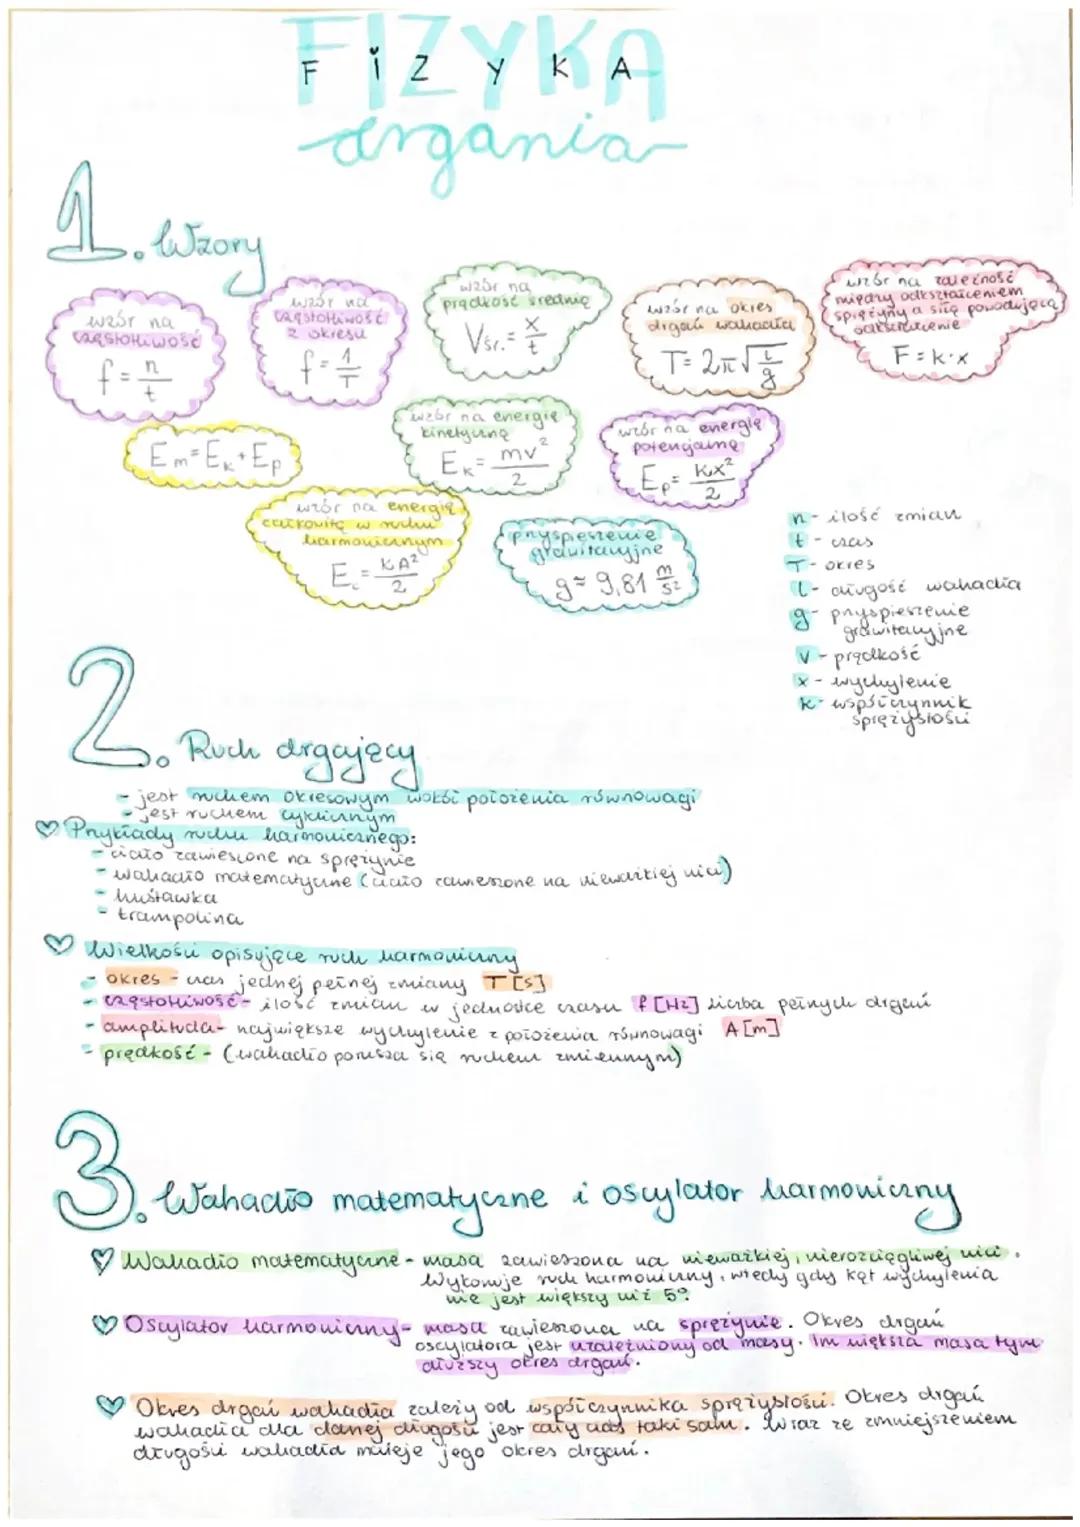 FIZYKA
F i Z Y K A
drgania
1. Wzory
wzór na
częstotliwość
f = n/t
wzór na
częstotliwość
z okresu
f = 1/T
wzór na
prędkość średnią
Vśr. = x/t
wzór na okres
drgań wahadła
T = 2π√l/g
wzór na zależność
między odkształceniem
sprężyny a siłą powodującą
odkształcenie
F = k·x
Em = Ek + Ep
wzór na energię
kinetyczną
Ek = mv²/2
wzór na energię
potencjalną
Ep = kx²/2
wzór na energię
całkowitą w ruchu
harmonicznym
Ec = kA²/2
przyspieszenie
grawitacyjne
g ≈ 9,81 m/s²
n - ilość zmian
t - czas
T - okres
l - długość wahadła
g - przyspieszenie
grawitacyjne
v - prędkość
x - wychylenie
k - współczynnik
sprężystości
2. Ruch drgający
- jest ruchem okresowym wokół położenia równowagi
- jest ruchem cyklicznym
♡ Przykłady ruchu harmonicznego:
- ciało zawieszone na sprężynie
- wahadło matematyczne (ciało zawieszone na nieważkiej nici)
- huśtawka
- trampolina
♡ Wielkości opisujące ruch harmoniczny
- okres - czas jednej pełnej zmiany T [s]
- częstotliwość - ilość zmian w jednostce czasu f [Hz] liczba pełnych drgań
- amplituda - największe wychylenie z położenia równowagi A [m]
- prędkość - (wahadło porusza się ruchem zmiennym)
3. Wahadło matematyczne i oscylator harmoniczny
♡ Wahadło matematyczne - masa zawieszona na nieważkiej, nierozciągliwej nici.
Wykonuje ruch harmoniczny, wtedy gdy kąt wychylenia
nie jest większy niż 5°.
♡ Oscylator harmoniczny - masa zawieszona na sprężynie. Okres drgań
oscylatora jest uzależniony od masy. Im większa masa tym
dłuższy okres drgań.
♡ Okres drgań wahadła zależy od współczynnika sprężystości. Okres drgań
wahadła dla danej długości jest cały czas taki sam. Wraz ze zmniejszeniem
długości wahadła maleje jego okres drgań.